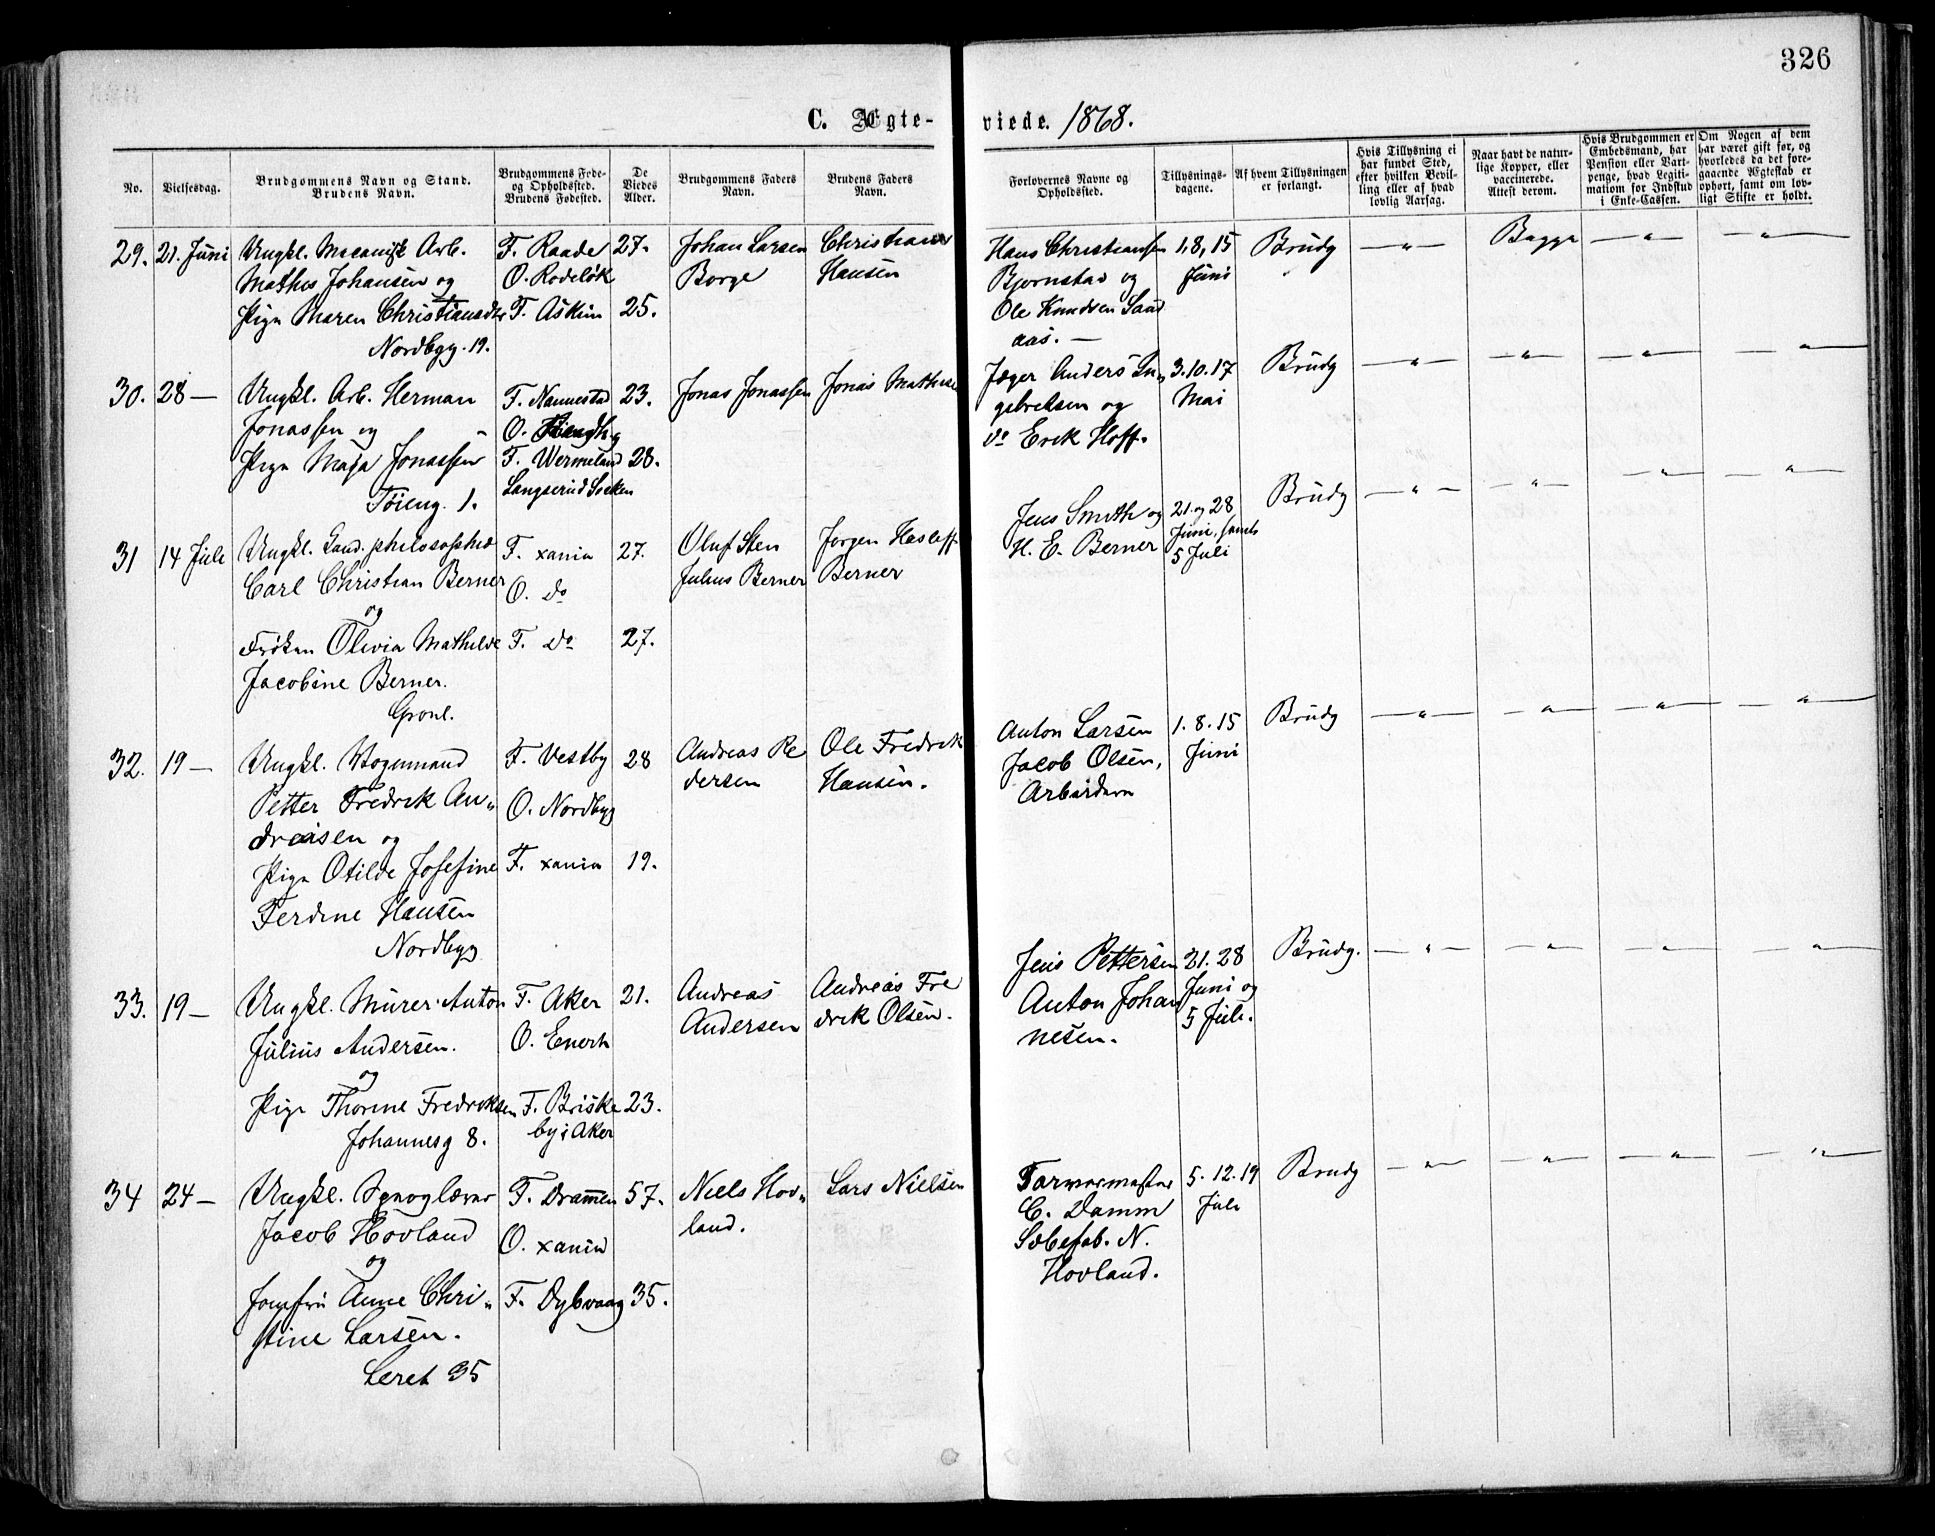 326
C. Ægte-
viede. 1868.
No.
Vielsesdag.
Brudgommens Navn og Stand.
Brudens Navn.
Brudgommens Føde-
og Opholdsted.
Brudens Fødested.
De
Viedes
Alder.
Brudgommens Faders
Navn.
Brudens Faders
Navn.
Forlovernes Navne og
Opholdsted.
Tillysnings-
dagene.
Af hvem Tillysningen
er forlangt.
Hvis Tillysning ei
har fundet Sted,
efter hvilken Bevil-
ling eller af hvad
lovlig Aarsag.
Naar havt de natur-
lige Kopper, eller
vaccinerede.
Attest derom.
Hvis Brudgommen er
Embedsmand, har
Pension eller Vart-
penge, hvad Legiti-
mation for Indskud
i Enke-Cassen.
Om Nogen af dem
har været gift før, og
hvorledes da det fore-
gaaende Ægteskab er
ophørt, samt om lov-
ligt Skifte er holdt.
29. 21. Juni
Ungkl. Mecanisk Arb.
Mathis Johansen og
Pige Maren Christiansdtr
Nordbyg. 19.
F. Raade 27.
O. Rodeløk
F. Askim 25.
Johan Larsen
Borge
Christian
Hansen
Hans Christiansen
Bjørnstad og
Ole Knudsen Sand
aas. —
1, 8, 15
Juni
Brudg
— " —
Bagge
— " —
— " —
30. 28 —
Ungkl. Arb. Herman
Jonassen og
Pige Maja Jonassen
Tøieng. 1.
F. Nannestad 23.
O.
F. Wermeland 28.
Langserud Socken
Jonas Jonassen
Jonas Mathise
Jæger Anders In„
gebretsen og
do Erik Hoff.
3. 10. 17
Mai
Brudg
— " —
— " —
— " —
— " —
31 14 Juli
Ungkl. Cand. philosophiæ
Carl Christian Berner
og
Frøken Olivia Mathilde
Jacobine Berner.
Grønl.
F. xania 27.
O. do
F. do 27.
Oluf Sten
Julius Berner
Jørgen Hesleff
Berner
Jens Smith og
H. E. Berner
21. og 28
Juni, samt
5 Juli
Brudg
— " —
— " —
— " —
— " —
32. 19 —
Ungkl. Vognmand
Petter Fredrik An„
dreasen og
Pige Otilde Josefine
Ferdine Hansen
Nordbyg
F. Vestby 28
O. Nordbyg
F. xania 19.
Andreas Pe
dersen
Ole Fredrik
Hansen.
Anton Larsen
Jacob Olsen,
Arbeidere
1. 8. 15
Juni
Brudg
— " —
— " —
— " —
— " —
33. 19 —
Ungkl. Murer Anton
Julius Andersen.
og
Pige Thorine Fredriksen
Johannesg 8.
F. Aker 21.
O. Enerh
F. Briske 23.
by i Aker
Andreas
Andersen
Andreas Fre
drik Olsen.
Jens Pettersen
Anton Johan
nesen.
21. 28
Juni og
5 Juli.
Brudg.
— " —
— " —
— " —
— " —
34 24 —
Ungkl. Sproglærer
Jacob Hovland
og
Jomfru Anne Chri„
stine Larsen.
Leret 35
F. Drammen 57.
O. xania
F. Dybvaag 35.
Niels Hov„
land.
Lars Nielsen
Farvermester
C. Damm
Sæbefab. N.
Hovland.
5. 12. 19
Juli
Brudg
— " —
— " —
— " —
— " —